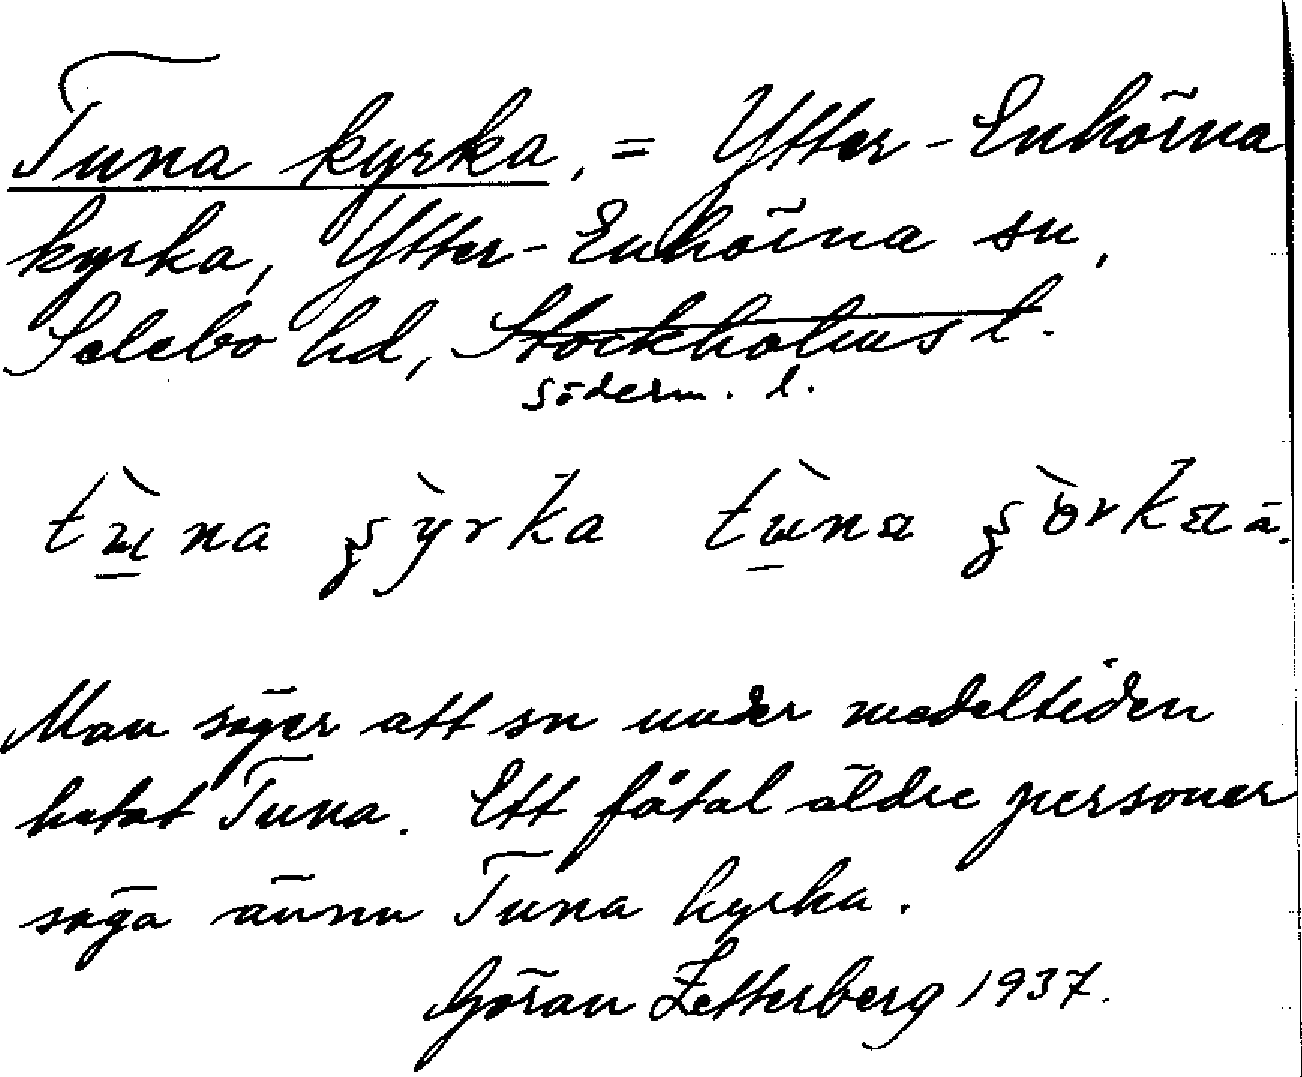 Tuna kyrka, = Ytter-Enhörna
kyrka, Ytter-Enhörna sn,
Selebo hd, Stockholms l.
Söderm. l.
Man säger att sn under medeltiden
hetat Tuna. Ett fåtal äldre personer
säga ännu Tuna kyrka.
Göran Zetterberg 1937.